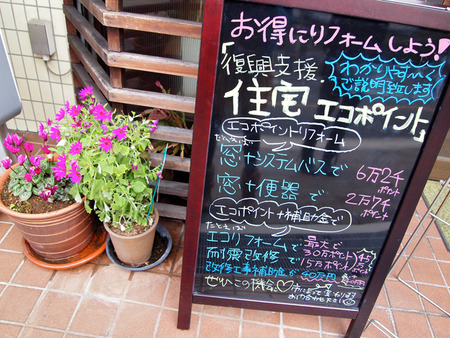 お得にリフォームしよう!
「復興支援
わかりやすく
ご説明致します
住宅エコポイント」
エコポイントリフォーム
たとえば
窓+システムバスで 6万2千
ポイント
窓+便器で 2万7千
ポイント
エコポイント+補助金で
たとえば
エコリフォームで 最大で
30万ポイント
耐震改修で 15万ポイント
改修工事補助金が 40万円
ぜひこの機会に♡